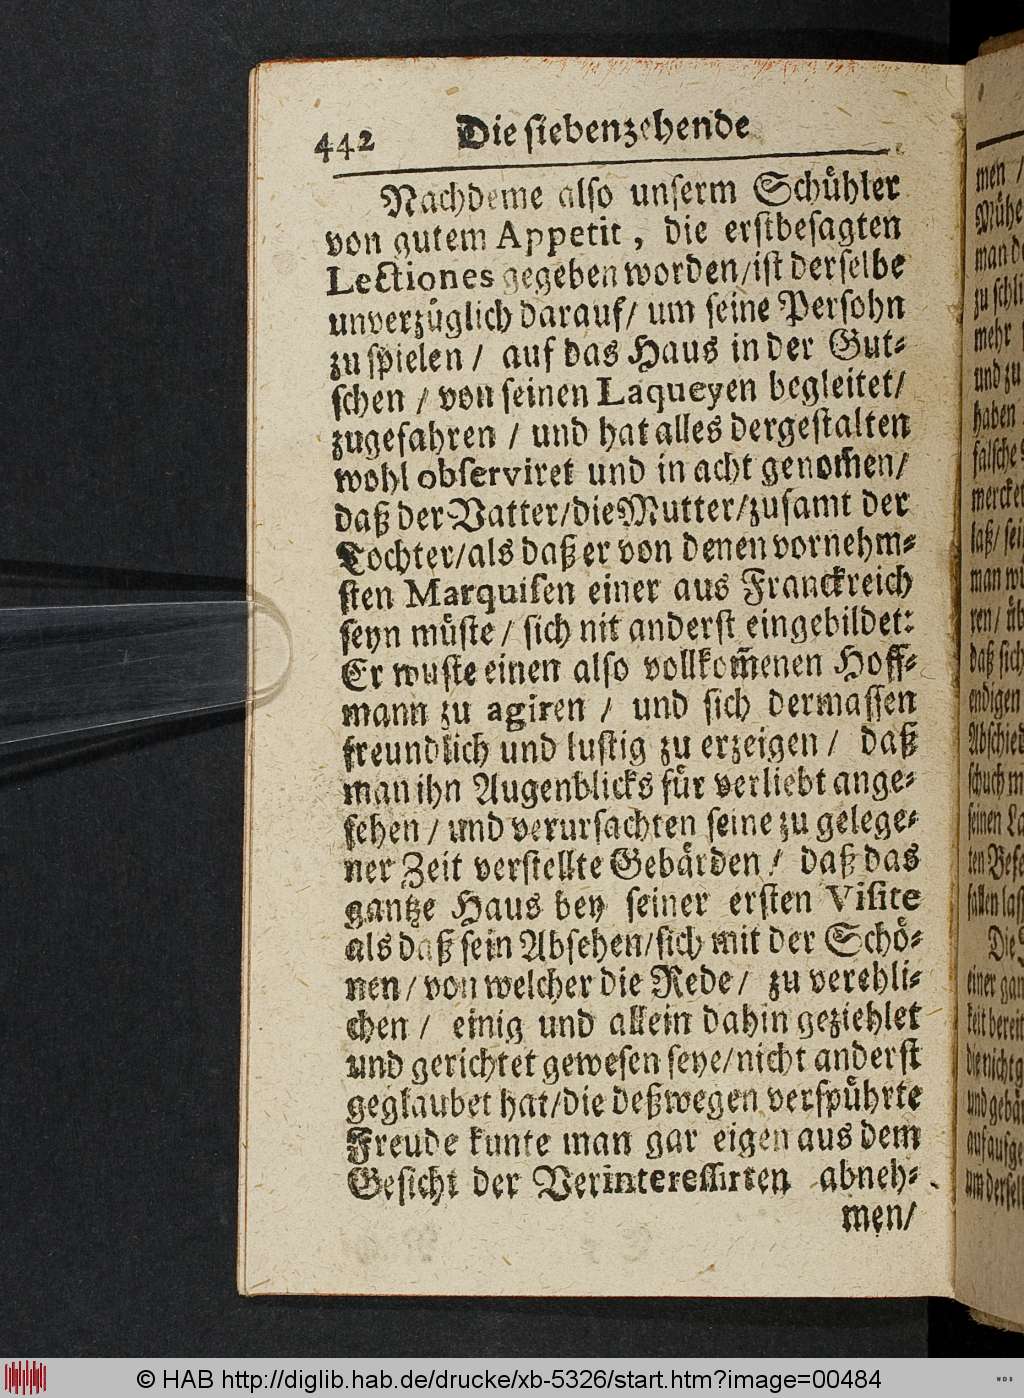 442 Die siebenzehende
Nachdeme also unserm Schühler
von gutem Appetit, die erstbesagten
Lectiones gegeben worden/ist derselbe
unverzüglich darauf/ um seine Persohn
zu spielen / auf das Haus in der Gut-
schen / von seinen Laqueyen begleitet/
zugefahren / und hat alles dergestalten
wohl observiret und in acht genom̃en/
daß der Vatter/die Mutter/zusamt der
Tochter/als daß er von denen vornehm-
sten Marquisen einer aus Franckreich
seyn müste / sich nit anderst eingebildet:
Er wuste einen also vollkom̃enen Hoff-
mann zu agiren / und sich dermassen
freundlich und lustig zu erzeigen / daß
man ihn Augenblicks für verliebt ange-
sehen / und verursachten seine zu gelege-
ner Zeit verstellte Gebärden / daß das
gantze Haus bey seiner ersten Visite
als daß sein Absehen/sich mit der Schö-
nen / von welcher die Rede / zu verehli-
chen / einig und allein dahin geziehlet
und gerichtet gewesen seye/nicht anderst
geglaubet hat/die deßwegen verspührte
Freude kunte man gar eigen aus dem
Gesicht der Verinteressirten abneh-
men/
men /
Mühe
man de
zu schli
mehr
und zu
haben
falsche
mercket
laß/ sei
man wi
ren/ üb
daß sich
endigen
Abschied
schuch m
seinen La
ten Befe
fallen las
Die
einer gan
keit bereit
die nicht g
und gebär
auf aufge
um dersel
© HAB http://diglib.hab.de/drucke/xb-5326/start.htm?image=00484
WDB